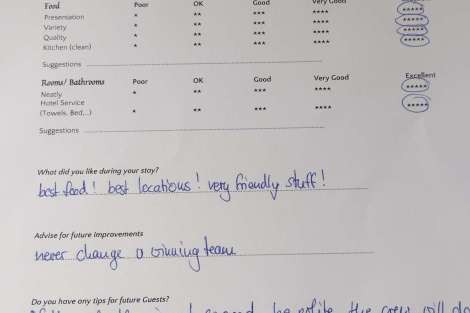 Food Poor OK Good Very Good
Presentation * ** *** **** *****
Variety * ** *** **** *****
Quality * ** *** **** *****
Kitchen (clean) * ** *** **** *****
Suggestions
Rooms/ Bathrooms Poor OK Good Very Good Excellent
Neatly * ** *** **** *****
Hotel Service
(Towels, Bed,..) * ** *** **** *****
Suggestions
What did you like during your stay?
best food! best locations! very friendly stuff!
Advise for future improvements
never change a winning team
Do you have any tips for future Guests?
be polite the crew will do